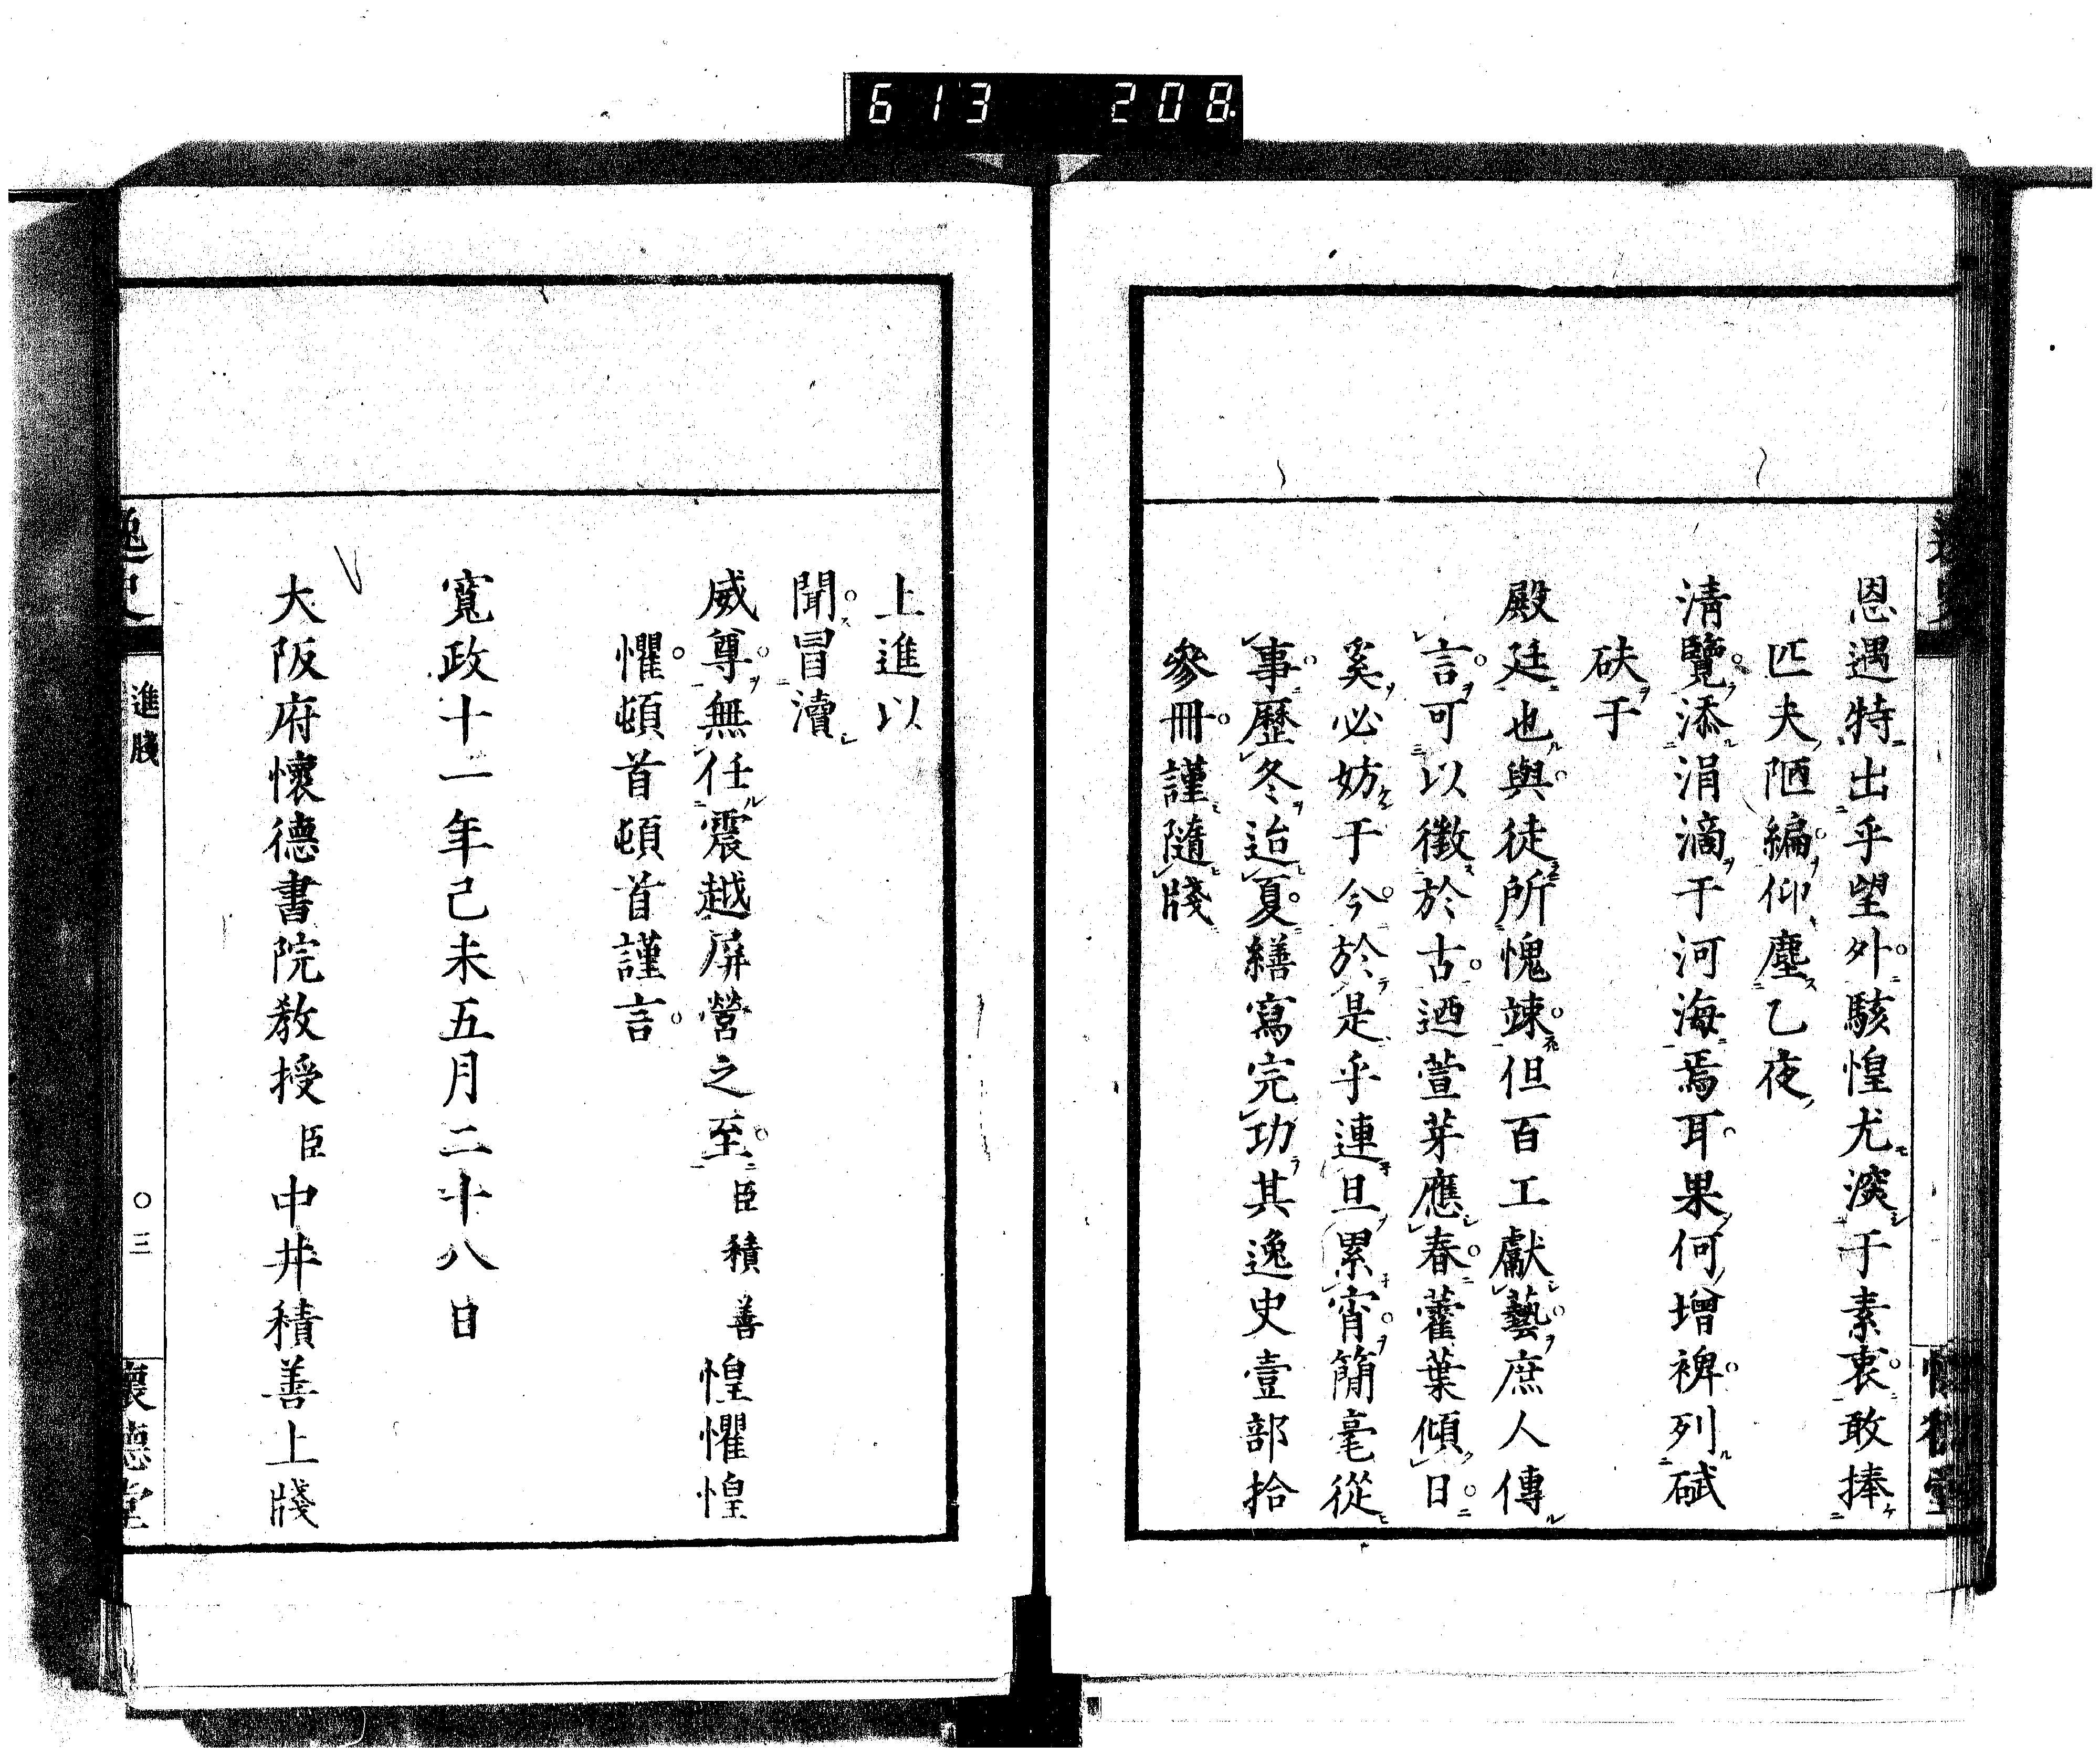 613 208
恩遇特出乎望外駭惶尤深于素衷敢捧
匹夫陋編仰塵乙夜
清覽添涓滴于河海焉耳果何增裨列碔
砆于
殿廷也與徒所愧竦但百工獻藝庶人傳
言可以徵於古迺萱芽應春藿葉傾日
奚必妨于今於是乎連旦累宵簡毫從
事歷冬迨夏繕寫完功其逸史壹部拾
參冊謹隨牋
上進以
聞冒瀆
威尊無任震越屏營之至臣積善惶懼惶
懼頓首頓首謹言
寬政十一年己未五月二十八日
大阪府懷德書院教授臣中井積善上牋
逸史
進牋
〇三
懷德堂